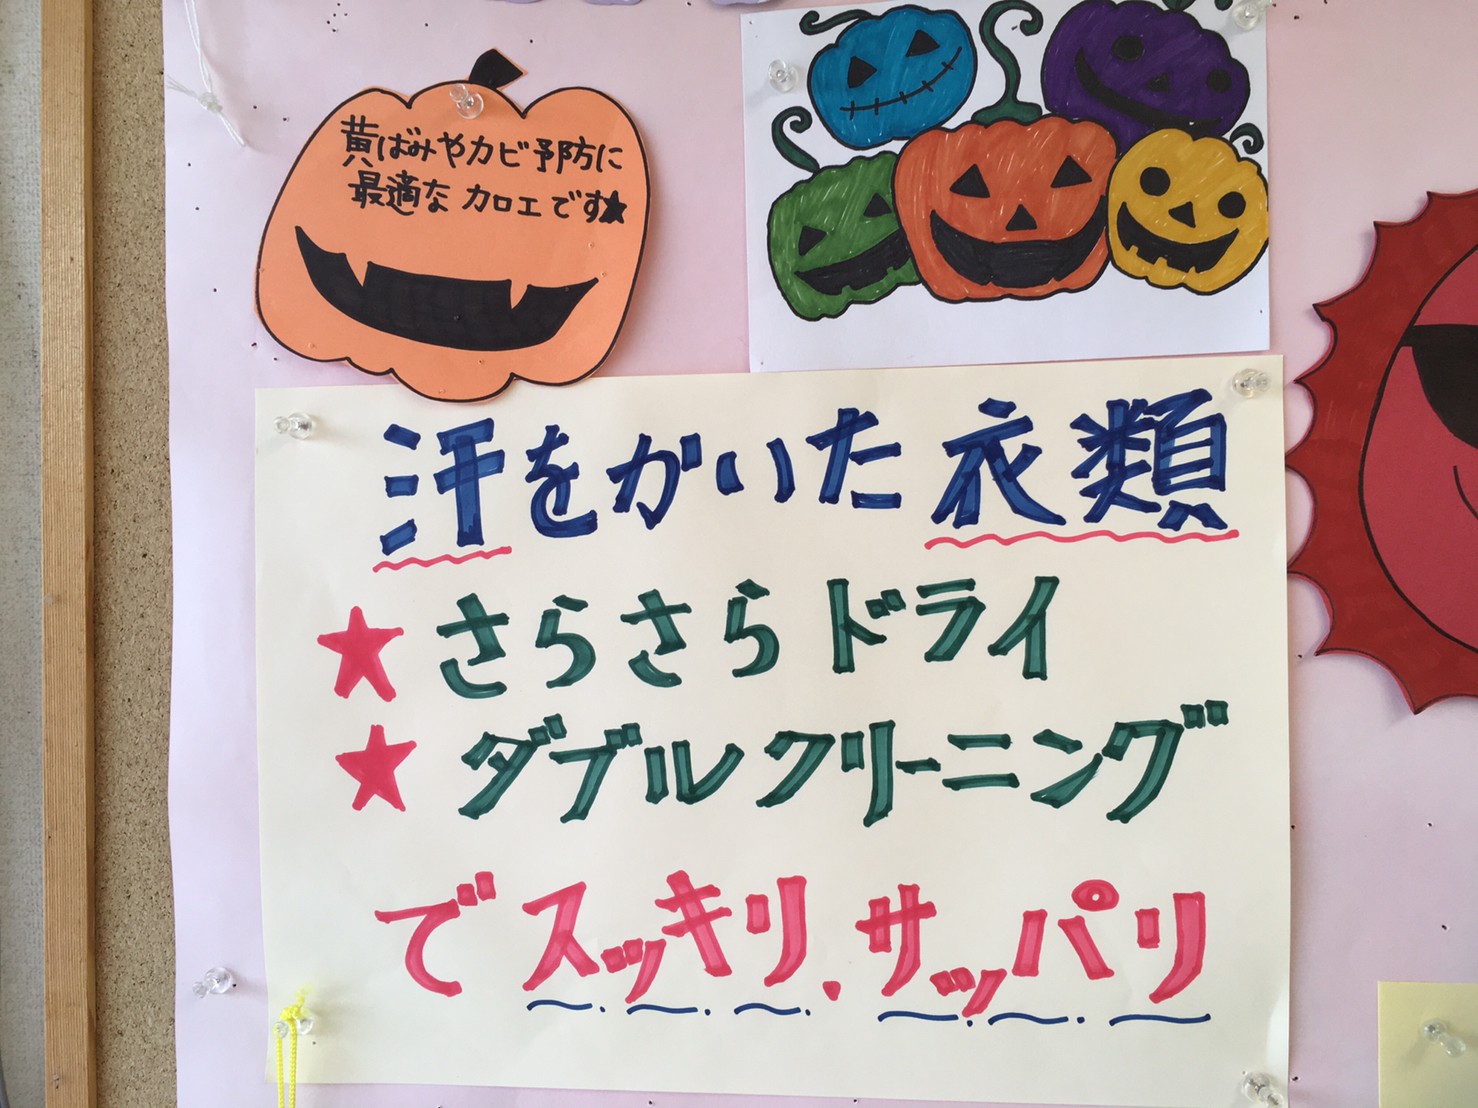 黄ばみやカビ予防に
最適な加工です★
汗をかいた衣類
★さらさらドライ
★ダブルクリーニング
でスッキリ、サッパリ